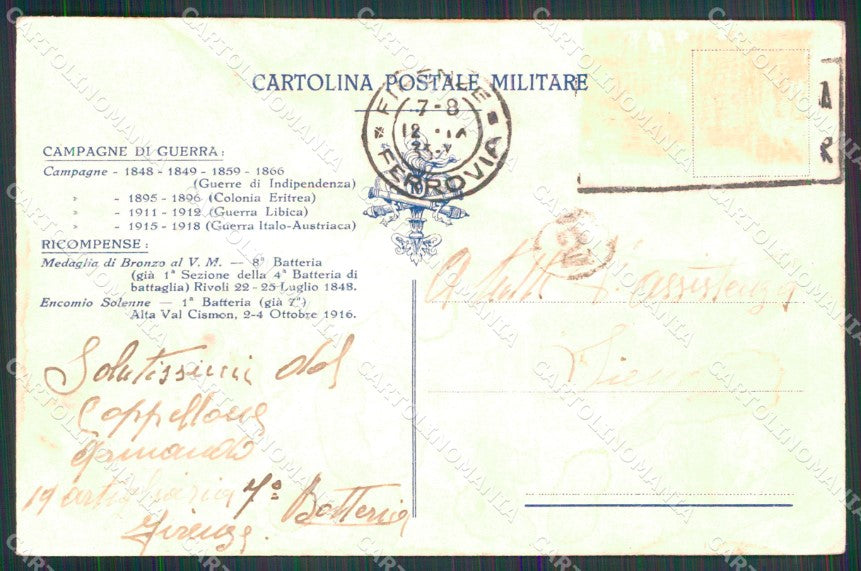 CARTOLINA POSTALE MILITARE
FIRENZE
7-8
12
FERROVIA
A
R
CAMPAGNE DI GUERRA:
Campagne - 1848 - 1849 - 1859 - 1866
(Guerre di Indipendenza)
» - 1895 - 1896 (Colonia Eritrea)
» - 1911 - 1912 (Guerra Libica)
» - 1915 - 1918 (Guerra Italo-Austriaca)
RICOMPENSE:
Medaglia di Bronzo al V. M. — 8ª Batteria
(già 1ª Sezione della 4ª Batteria di
battaglia) Rivoli 22 - 23 Luglio 1848.
Encomio Solenne — 1ª Batteria (già 7ª)
Alta Val Cismon, 2-4 Ottobre 1916.
A tutti l'assistenza
Salutissimi dal
Cappellone
Armando
19 artiglieria 7ª Batteria
Firenze.
CARTOLINOMANIA